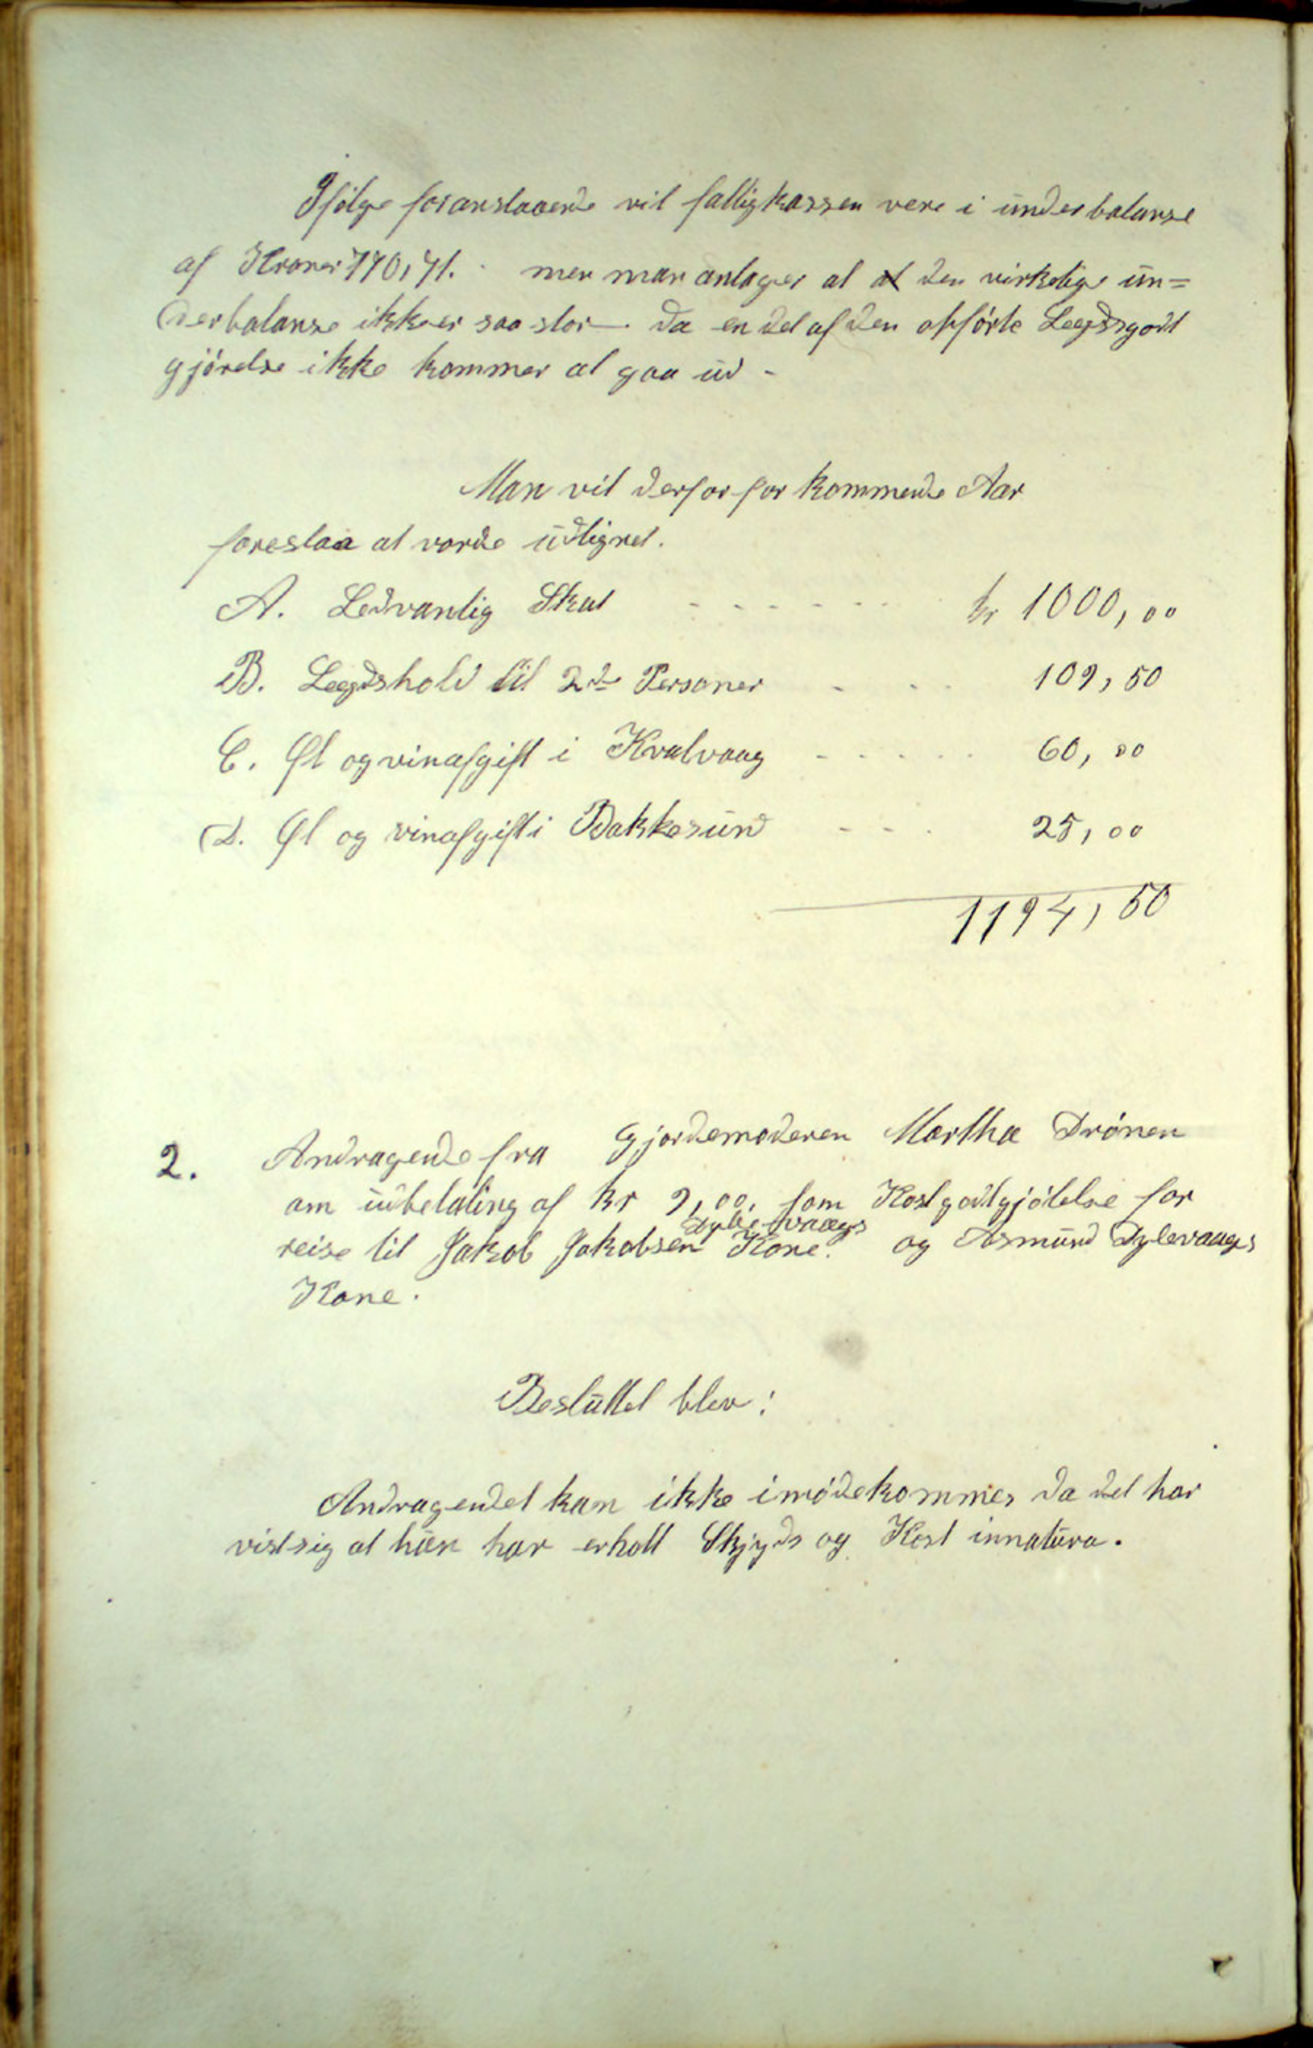 Ifølge foranstaaende vil fattigkassen vere i underbalanse
af Kroner 770,71. men man antager at at den virkelige un=
derbalanse ikke er saa stor da en del af den opførte Legdsgodt
gjørelse ikke kommer at gaa ud -
Man vil derfor for kommende Aar
foreslaa at vorde udlignet.
A. Sedvanlig Skat - - - - - - kr 1000,00
B. Legdshold til 2de Personer - - - 109,50
C. Øl og vinafgift i Kvalvaag - - - - - 60,00
D. Øl og vinafgift i Bakkesund - - - 25,00
1194,50
2. Andragende fra Gjordemoderen Martha Drønen
om udbetaling af kr 9,00, som Kostgodtgjølelse for
Dyle-vaags
reise til Jakob Jakobsen Kone. og Asmund Dylevaags
Kone.
Besluttet blev:
Andragendet kan ikke imødekommes da det har
vist sig at hun har erholt Skyds og Kost innatura.